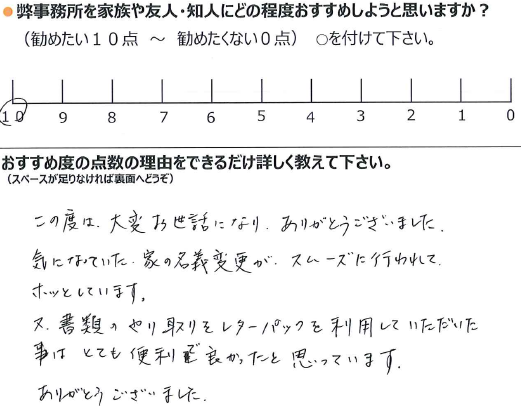 ● 弊事務所を家族や友人・知人にどの程度おすすめしようと思いますか？
（勧めたい１０点 ～ 勧めたくない０点） ○を付けて下さい。
10 9 8 7 6 5 4 3 2 1 0
おすすめ度の点数の理由をできるだけ詳しく教えて下さい。
（スペースが足りなければ裏面へどうぞ）
この度は、大変お世話になり、ありがとうございました。
気になっていた、家の名義変更が、スムーズに行われて、
ホッとしています。
又、書類のやり取りをレターパックを利用していただいた
事は とても便利で良かったと思っています。
ありがとうございました。